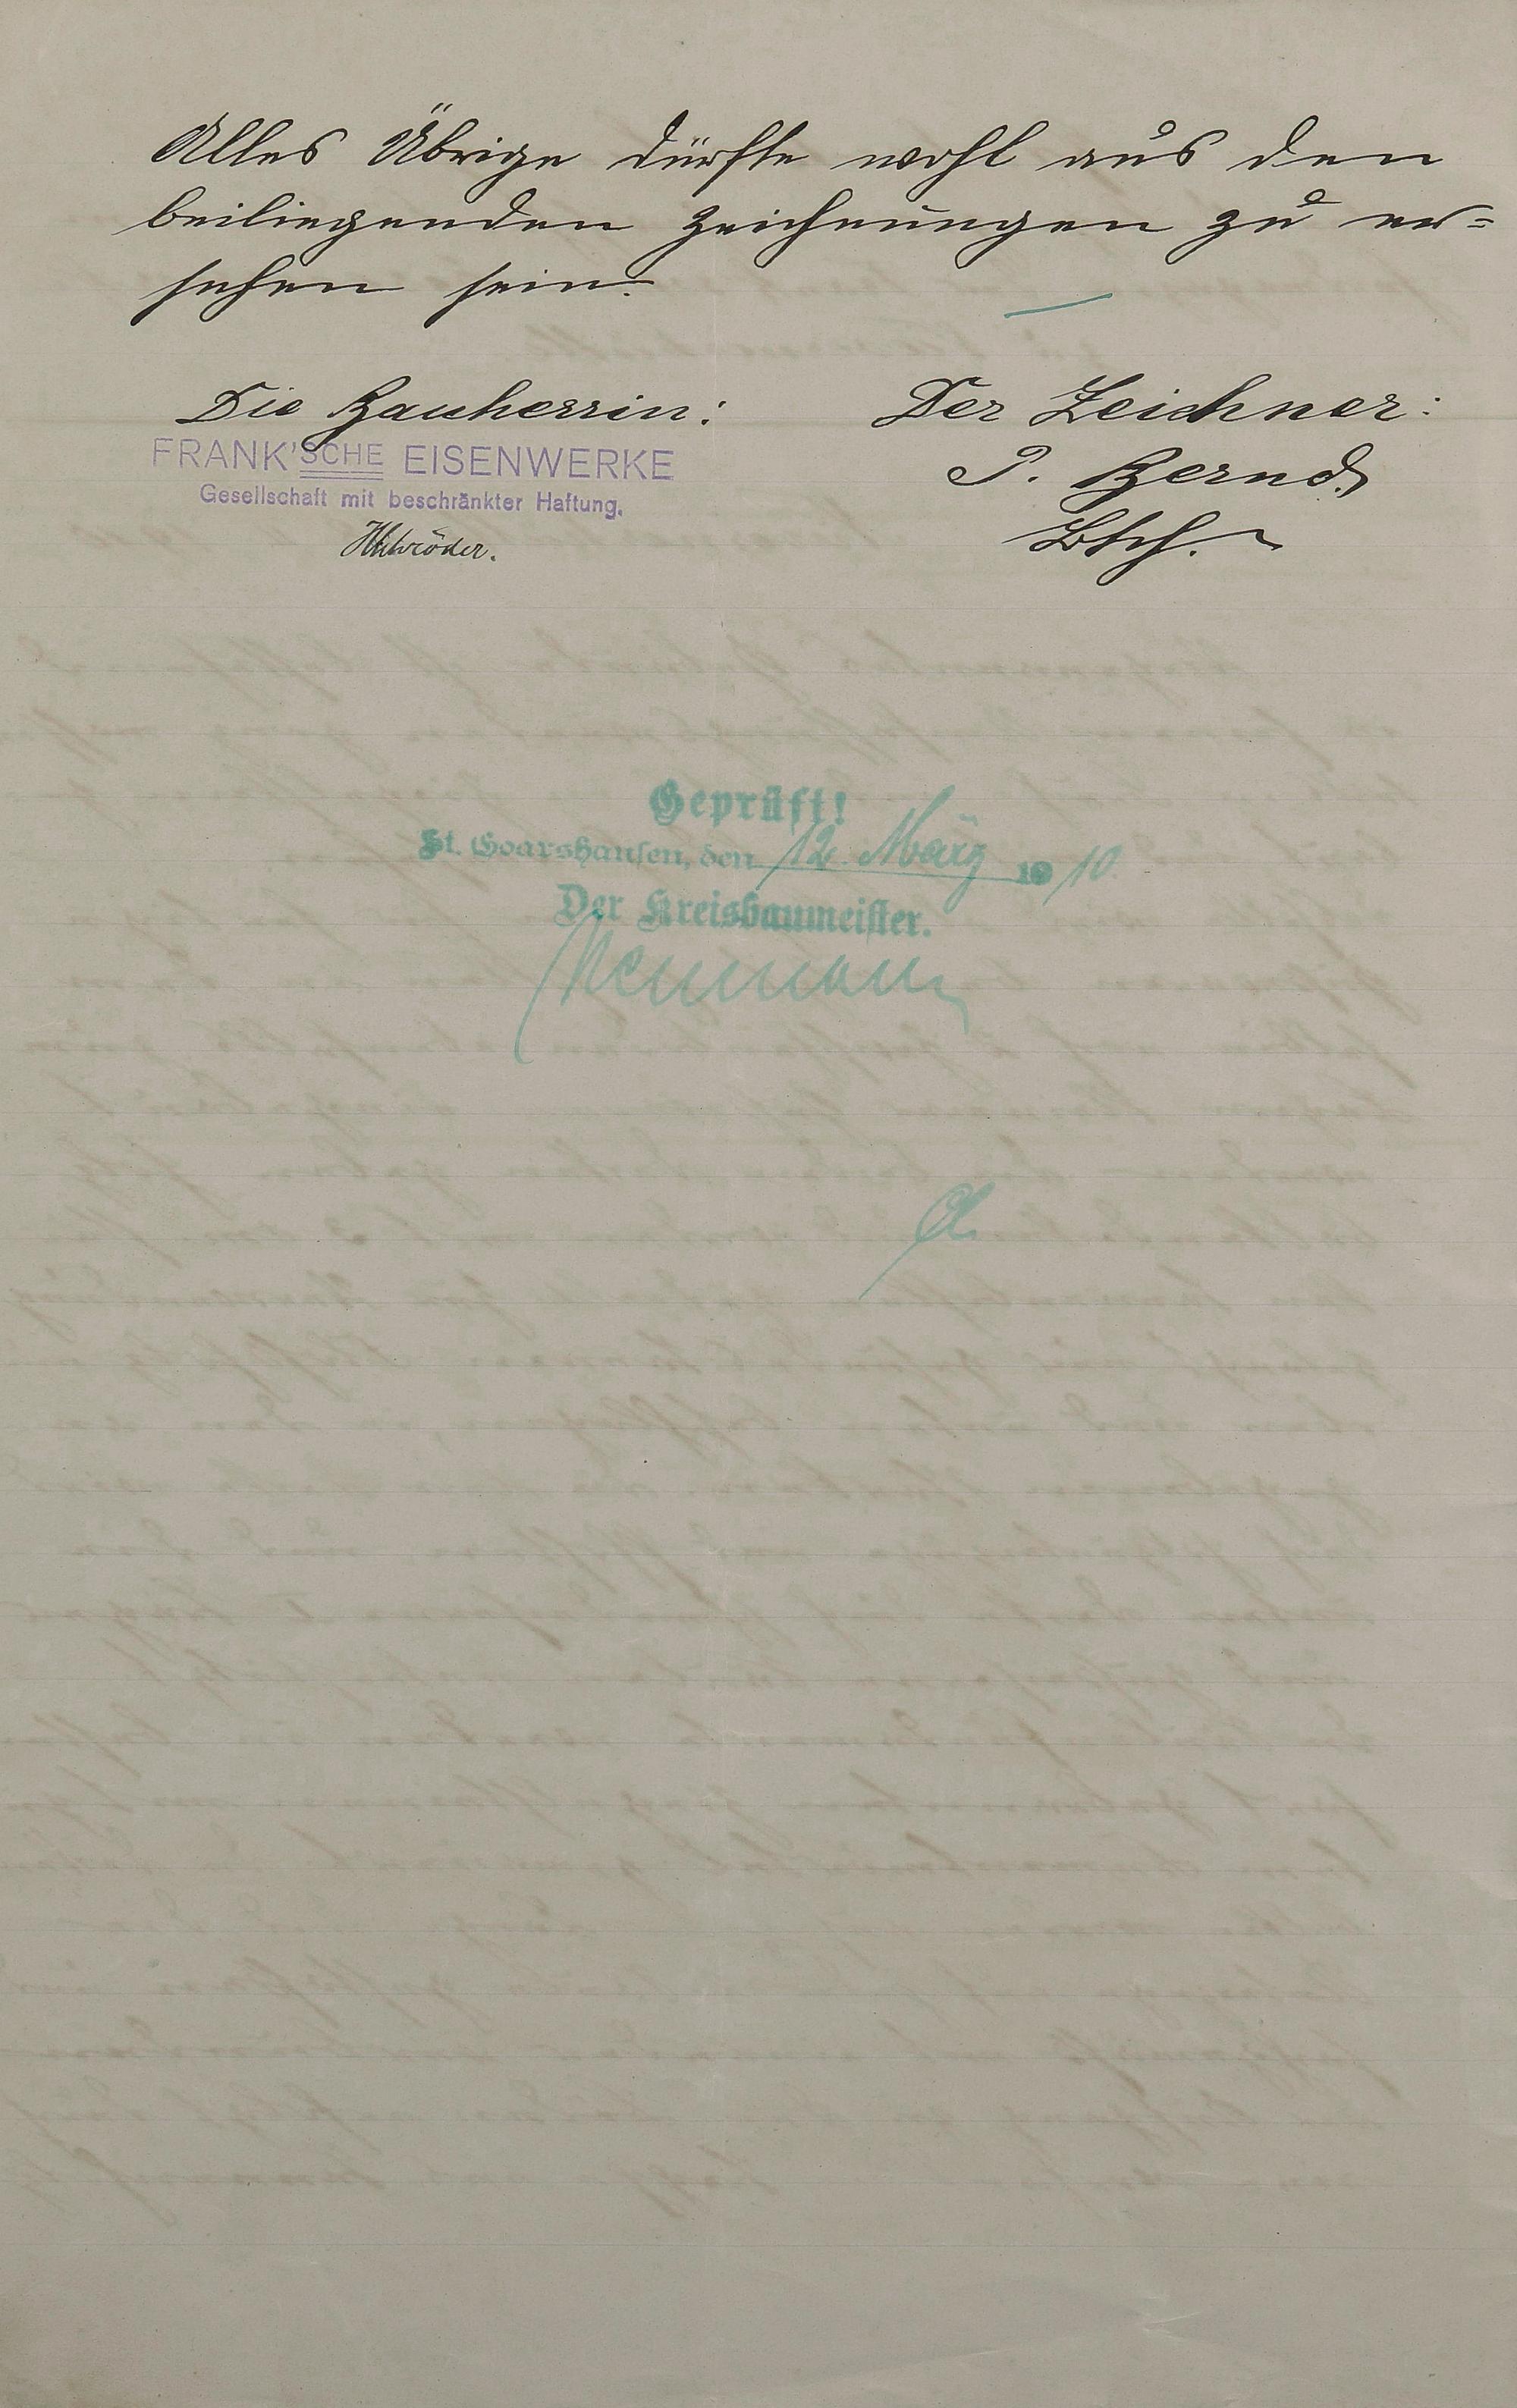 Alles Übrige dürfte wohl aus den
beiliegenden Zeichnungen zu er=
sehen sein.
Die Bauherrin:
FRANK'SCHE EISENWERKE
Gesellschaft mit beschränkter Haftung.
HSchröder.
Der Zeichner:
P. Bernd
Geprüft!
St. Goarshausen, den 12. März 1910.
Der Kreisbaumeister.
Neumann